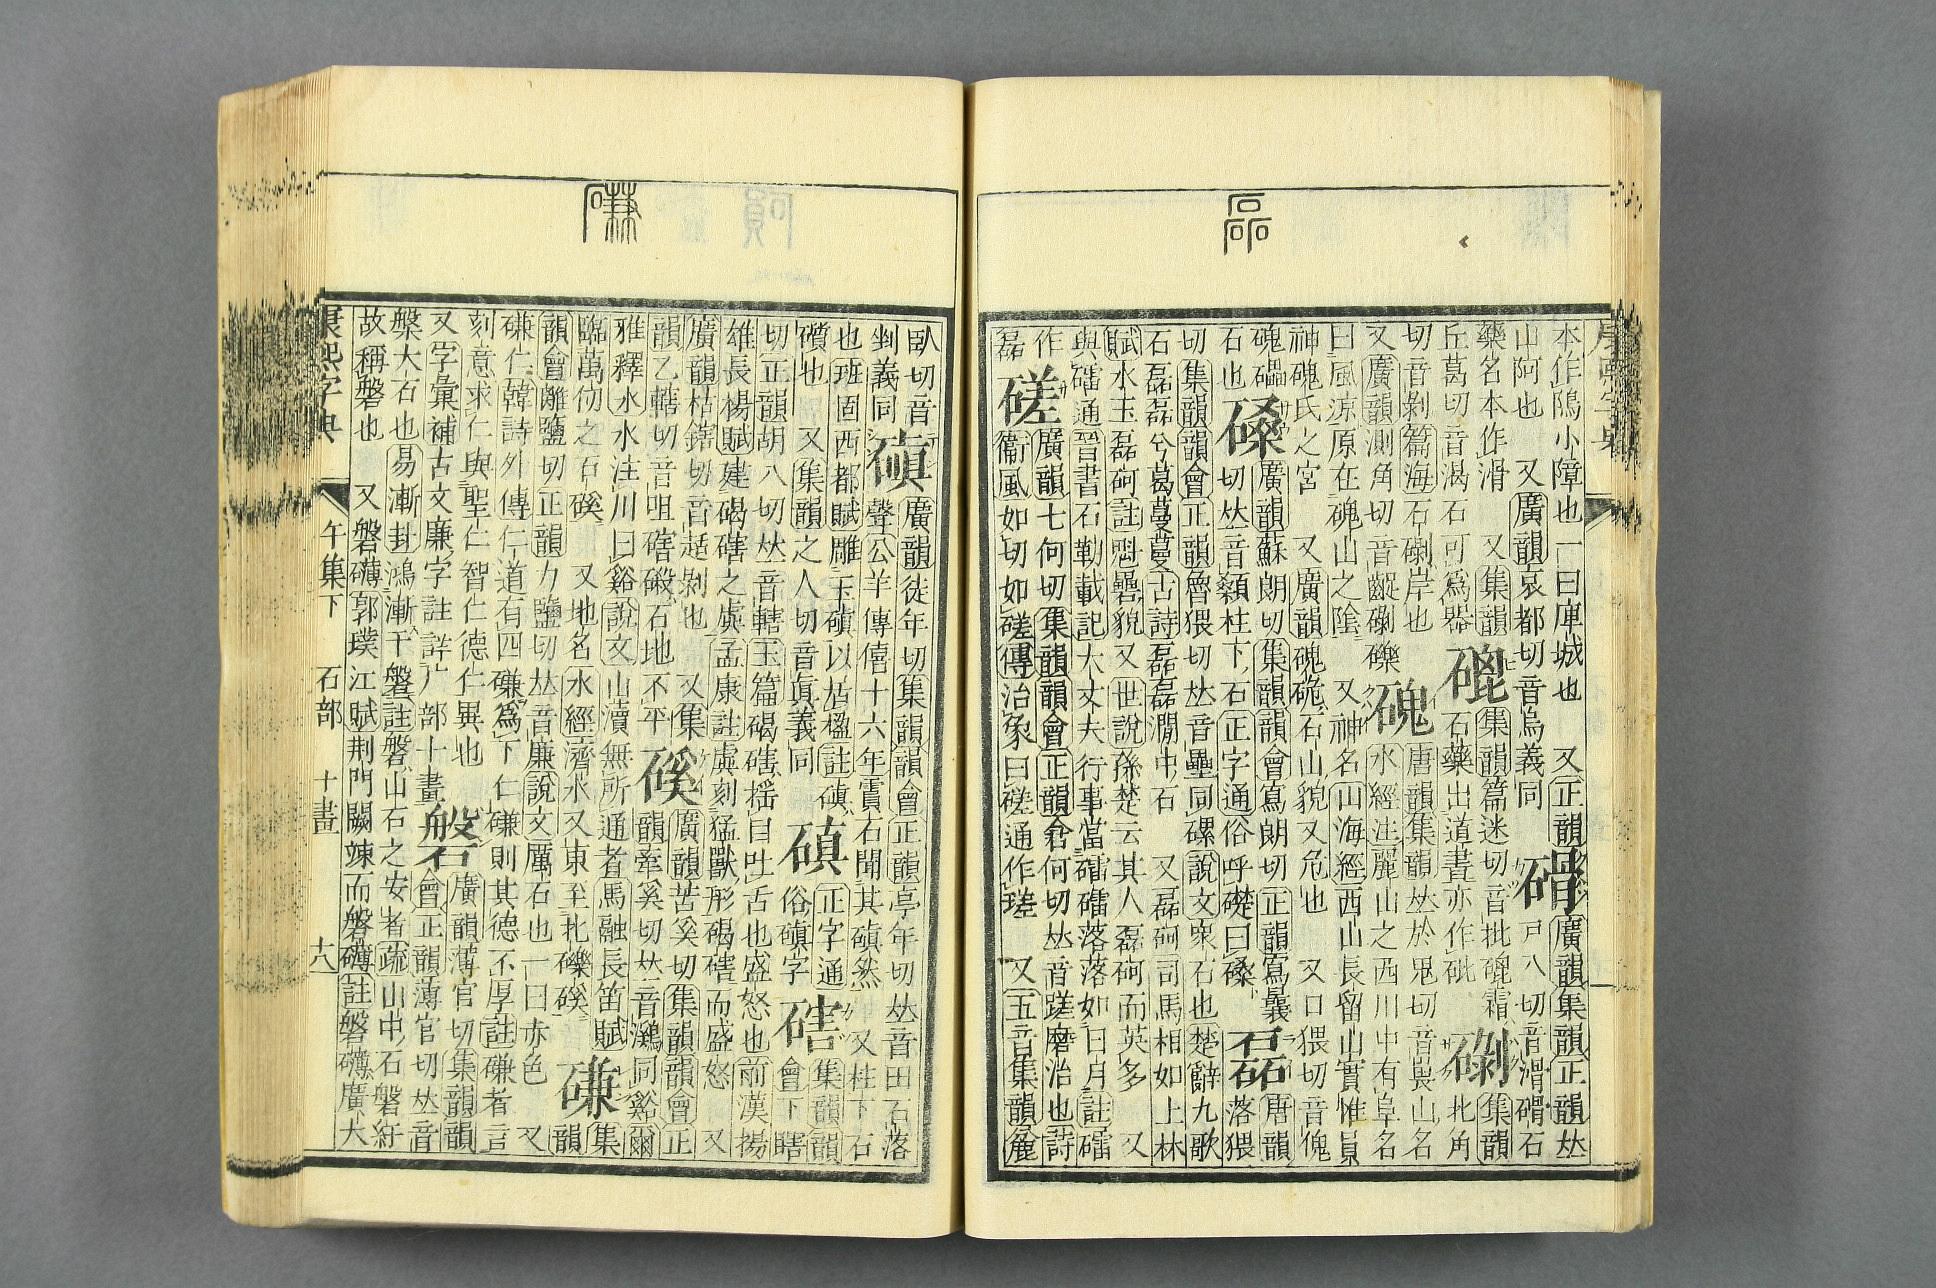 磊
本作隝小障也一曰庳城也　又正韻
山阿也　又廣韻哀都切音烏義同
磆
廣韻集韻正韻𠀤
尸八切音滑磆石
藥名本作滑　又集韻
丘葛切音渴石可爲器
磇
集韻篇迷切音批磇霜
石藥出道書亦作砒
集韻
北角
切音剝篇海石岸也
又廣韻測角切音齪礫
磈
唐韻集韻𠀤於鬼切音畏山名
水經注麗山之西川中有阜名
曰風涼原在磈山之陰　又神名山海經西山長留山實惟員
神磈氏之宮　又廣韻磈硊石山貌又危也　又口猥切音傀
磈礧
石也
磉
廣韻蘇朗切集韻韻會寫朗切正韻寫曩
切𠀤音顙柱下石正字通俗呼礎曰磉
磊
唐韻
落猥
切集韻韻會正韻魯猥切𠀤音壘同磥說文衆石也楚辭九歌
石磊磊兮葛蔓蔓古詩磊磊澗中石　又磊砢司馬相如上林
賦水玉磊砢註魁礨貌又世說孫楚云其人磊砢而英多　又
與礌通晉書石勒載記大丈夫行事當礌礌落落如日月註礌
作
磊
磋
廣韻七何切集韻韻會正韻倉何切𠀤音蹉磨治也詩
衞風如切如磋傳治象曰磋通作瑳　又五音集韻麤
臥切音
剉義同
磌
廣韻徒年切集韻韻會正韻亭年切𠀤音田石落
聲公羊傳僖十六年霣石聞其磌然　又柱下石
也班固西都賦雕玉磌以居楹註磌
礩也　又集韻之人切音眞義同
正字通
俗磌字
磍
集韻韻
會下瞎
切正韻胡八切𠀤音轄玉篇磍磍搖目吐舌也盛怒也前漢揚
雄長楊賦建碣磍之虡孟康註虡刻猛獸形碣磍而盛怒　又
廣韻枯鎋切音剝也　又集
韻乙轄切音磍石地不平
磎
廣韻苦奚切集韻韻會正
韻牽奚切𠀤音鸂同谿爾
雅釋水水注川曰谿說文山瀆無所通者馬融長笛賦
臨萬仞之石磎　又地名水經濟水又東至北礫磎
磏
集
韻
韻會離鹽切正韻力鹽切𠀤音廉說文厲石也一曰赤色　又
磏仁韓詩外傳仁道有四磏爲下仁磏則其德不厚註磏者言
刻意求仁與聖仁智仁德仁異也
又字彙補古文廉字註詳广部十畫
磐
廣韻薄官切集韻韻
會正韻薄官切𠀤音
槃大石也易漸封鴻漸于磐註磐山石之安者疏山中石磐紆
故稱磐也　又磐礴郭璞江賦荆門闕竦而磐礴註磐礴廣大
康熙字典　午集下　石部　十畫　十八